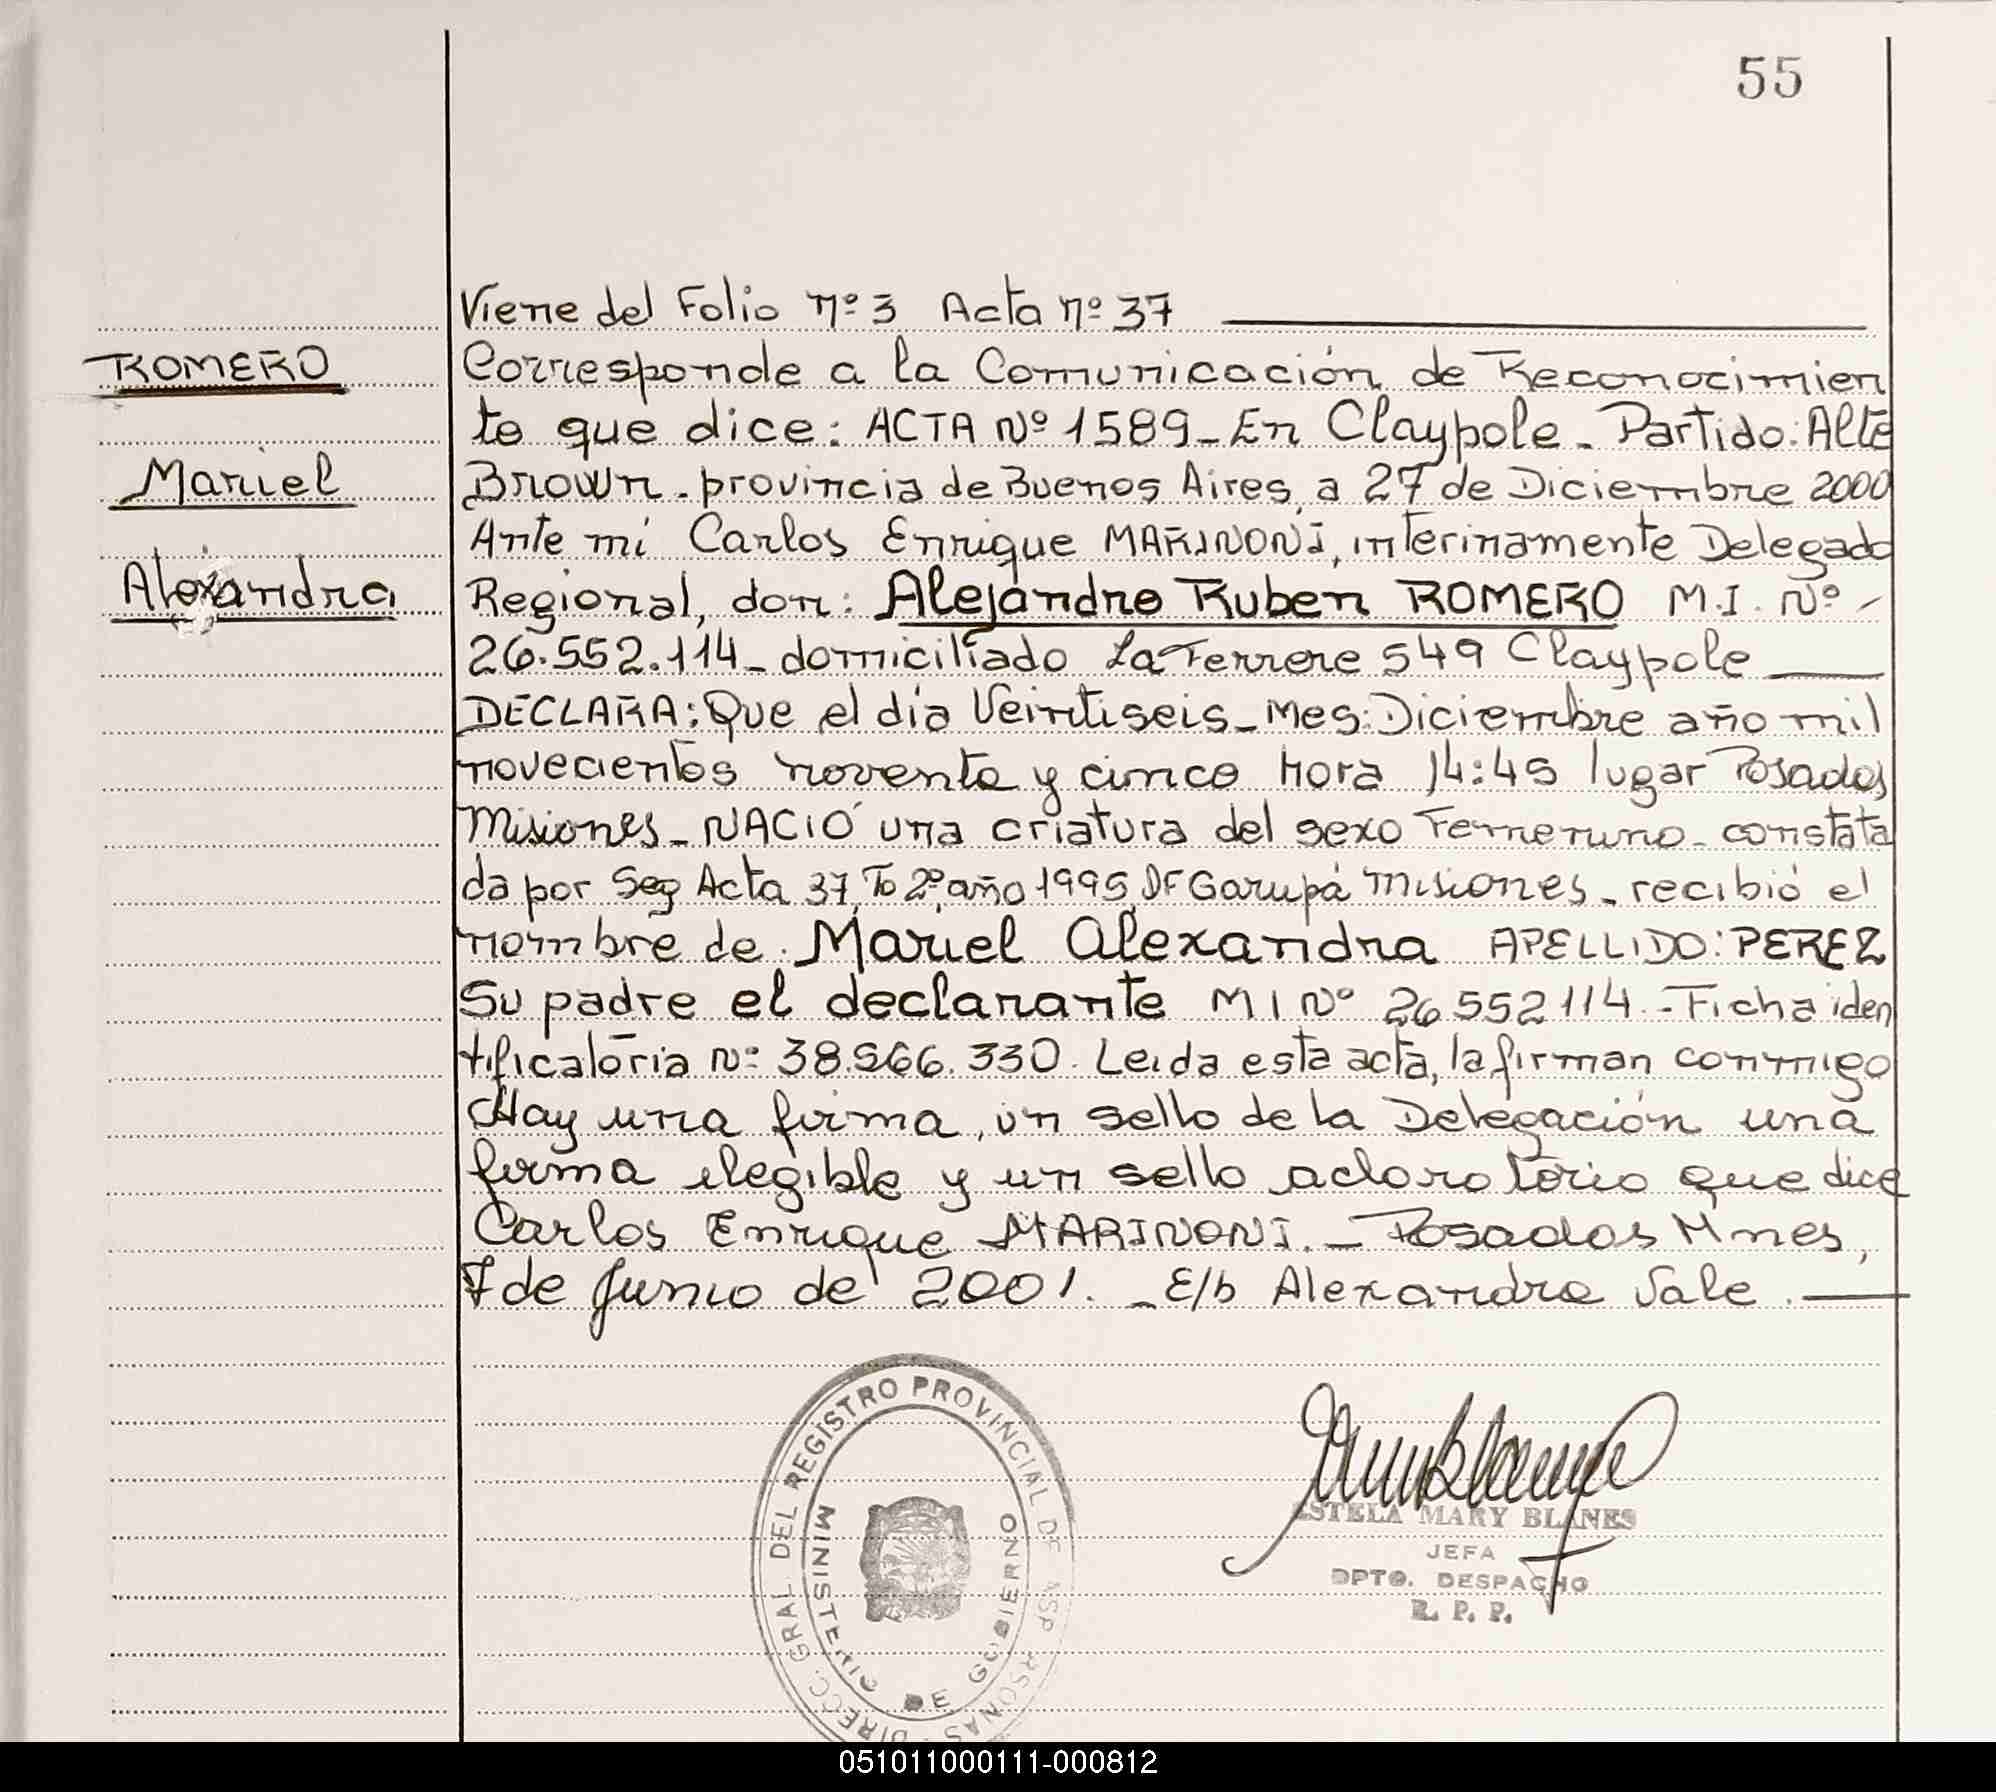 55
Viene del Folio nº 3 Acta nº 37
ROMERO
Corresponde a la Comunicación de Reconocimien
to que dice: ACTA Nº 1589_ En Claypole_ Partido: Alte
Mariel
Brown. provincia de Buenos Aires, a 27 de Diciembre 2000
Ante mi Carlos Enrique MARINONI, interinamente Delegado
Alexandra
Regional, don: Alejandro Ruben ROMERO M.I. Nº -
26.552.114_ domiciliado La Ferrere 549 Claypole
DECLARA: Que el día Veintiseis_ Mes: Diciembre año mil
novecientos noventa y cinco hora 14:45 lugar Posadas
Misiones_ NACIÓ una criatura del sexo Femenino_ constata
da por Seg Acta 37, To 2º, año 1995, DF Garupá Misiones_ recibió el
nombre de. Mariel Alexandra APELLIDO: PEREZ
Su padre el declarante M I Nº 26 552 114 - Ficha iden
tificatoria Nº 38.566.330. Leida esta acta, la firman conmigo
Hay una firma, un sello de la Delegación una
firma ilegible y un sello aclaratorio que dice
Carlos Enrique MARINONI._ Posadas Mnes,
7 de Junio de 2001. _ E/b Alexandra Vale.
DIRECC. GRAL. DEL REGISTRO PROVINCIAL DE
MINISTERIO DE GOBIERNO
ESTELA MARY BLANES
JEFA
DPTO. DESPACHO
R. P. P.
051011000111-000812